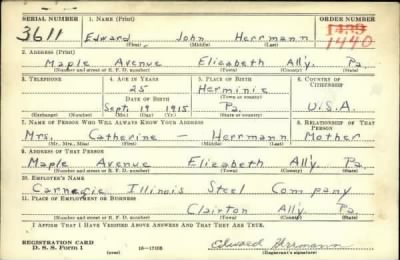 SERIAL NUMBER 1. NAME (Print) ORDER NUMBER
3611 Edward John Herrmann 1439
1440
(First) (Middle) (Last)
2. ADDRESS (Print)
Maple Avenue Elizabeth All'y. Pa.
(Number and street or R. F. D. number) (Town) (County) (State)
3. TELEPHONE 4. AGE IN YEARS 5. PLACE OF BIRTH 6. COUNTRY OF CITIZENSHIP
25 Herminie
DATE OF BIRTH (Town or county)
Sept. 19 1915 Pa. U.S.A.
(Exchange) (Number) (Mo.) (Day) (Yr.) (State or country)
7. NAME OF PERSON WHO WILL ALWAYS KNOW YOUR ADDRESS 8. RELATIONSHIP OF THAT PERSON
Mrs. Catherine — Herrmann Mother
(Mr., Mrs., Miss) (First) (Middle) (Last)
9. ADDRESS OF THAT PERSON
Maple Avenue Elizabeth All'y Pa.
(Number and street or R. F. D. number) (Town) (County) (State)
10. EMPLOYER'S NAME
Carnegie Illinois Steel Company
11. PLACE OF EMPLOYMENT OR BUSINESS
Clairton All'y Pa.
(Number and street or R. F. D. number) (Town) (County) (State)
I AFFIRM THAT I HAVE VERIFIED ABOVE ANSWERS AND THAT THEY ARE TRUE.
REGISTRATION CARD
D. S. S. Form 1 (over) 16—17105 Edward Herrmann
(Registrant's signature)